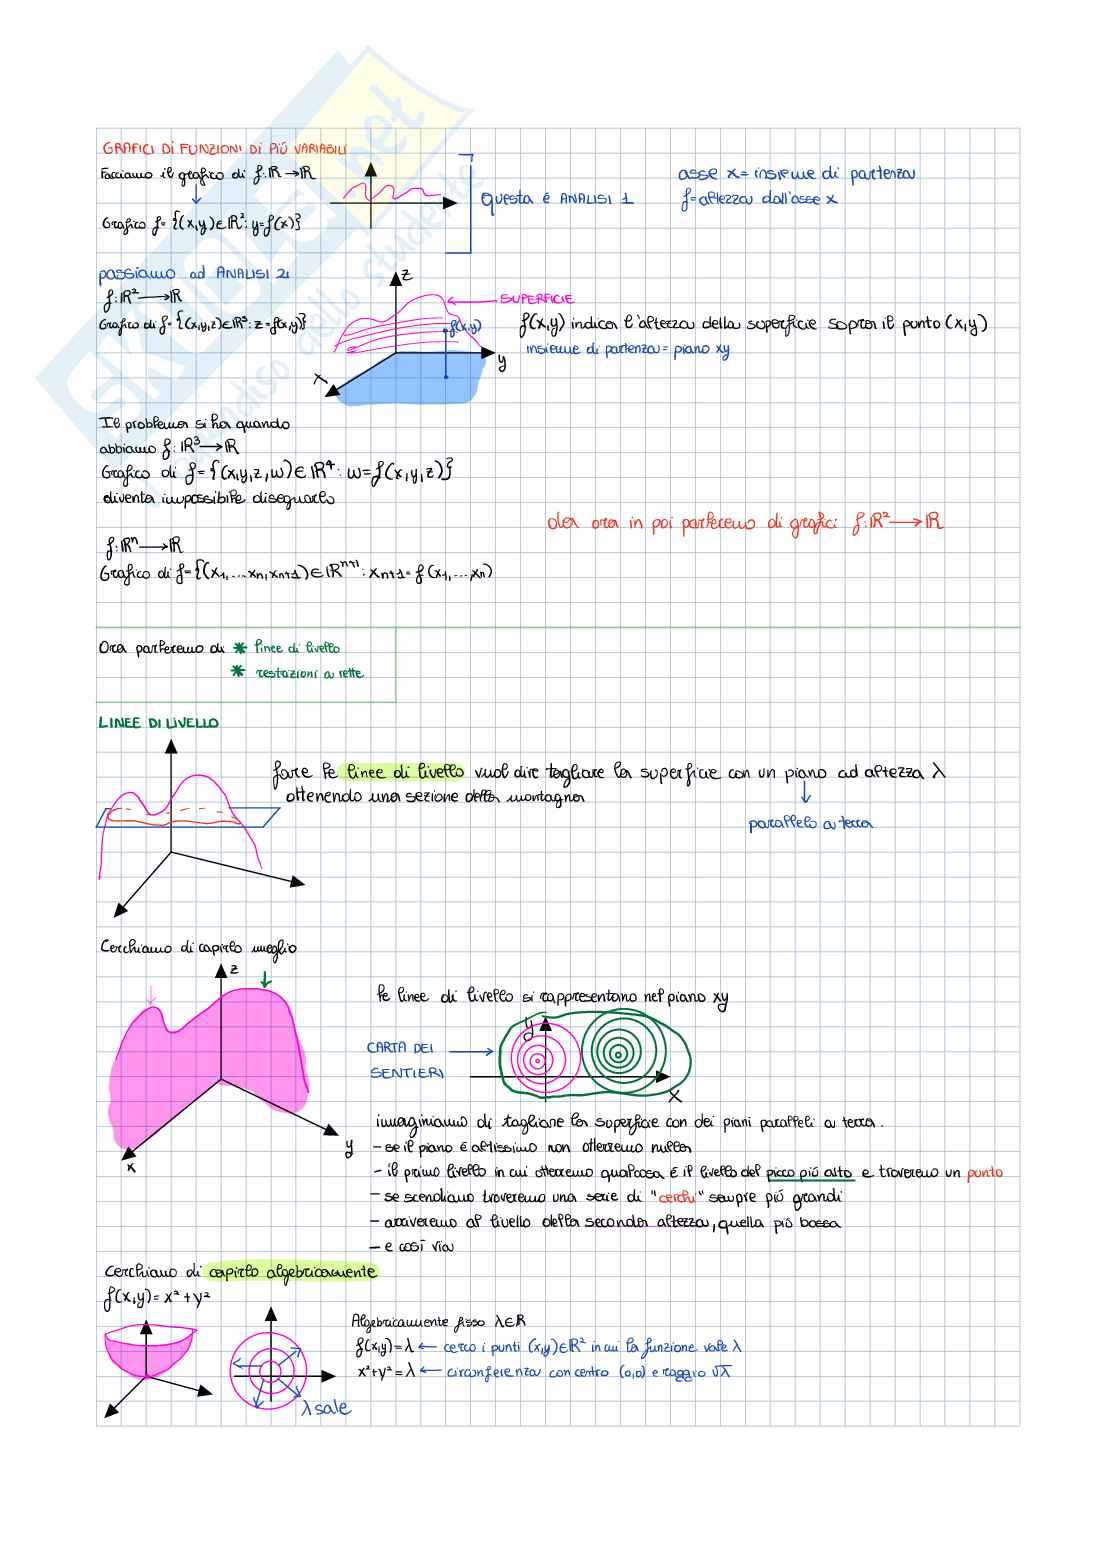 GRAFICI DI FUNZIONI DI PIÚ VARIABILI
Facciamo il grafico di f: ℝ → ℝ
Grafico f = {(x,y) ∈ ℝ²: y=f(x)}
Questa é ANALISI 1
asse x = insieme di partenza
f = altezza dall'asse x
passiamo ad ANALISI 2:
f: ℝ² → ℝ
Grafico di f = {(x,y,z) ∈ ℝ³: z = f(x,y)}
z
SUPERFICIE
f(x,y)
y
x
f(x,y) indica l'altezza della superficie sopra il punto (x,y)
insieme di partenza = piano xy
Il problema si ha quando
abbiamo f: ℝ³ → ℝ
Grafico di f = {(x,y,z,w) ∈ ℝ⁴: w = f(x,y,z)}
diventa impossibile disegnarlo
da ora in poi parleremo di grafici f: ℝ² → ℝ
f: ℝⁿ → ℝ
Grafico di f = {(x₁,...xₙ,xₙ₊₁) ∈ ℝⁿ⁺¹: xₙ₊₁ = f(x₁,...,xₙ)}
Ora parleremo di * linee di livello
* restazioni a rette
LINEE DI LIVELLO
fare le linee di livello vuol dire tagliare la superficie con un piano ad altezza λ
ottenendo una sezione della montagna
parallelo a terra
Cerchiamo di capirlo meglio
z
y
x
le linee di livello si rappresentano nel piano xy
CARTA DEI
SENTIERI
y
x
immaginiamo di tagliare la superficie con dei piani paralleli a terra.
- se il piano é altissimo non otterremo nulla
- il primo livello in cui otterremo qualcosa é il livello del picco piú alto e troveremo un punto
- se scendiamo troveremo una serie di "cerchi" sempre piú grandi
- arriveremo al livello della seconda altezza, quella piú bassa
- e cosí via
Cerchiamo di capirlo algebricamente
f(x,y) = x² + y²
λ sale
Algebricamente fisso λ∈ℝ
f(x,y) = λ ← cerco i punti (x,y)∈ℝ² in cui la funzione vale λ
x²+y² = λ ← circonferenza con centro (0,0) e raggio √λ
SKUOLA.net
il paradiso dello studente